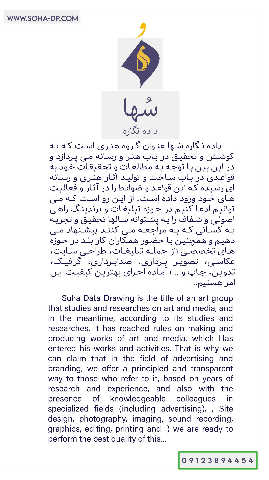 WWW.SOHA-DP.COM
سُها
داده نگاره
داده نگاره سُها عنوان گروه هنری است که به
کوشش و تحقیق در باب هنر و رسانه می پردازد و
در این بین با توجه به مطالعات و تحقیقات خود به
قواعدی در باب ساخت و تولید آثار هنری و رسانه
ای رسیده که این قواعد و ضوابط را در آثار و فعالیت
های خود ورود داده است. از این رو است که می
توانیم ادعا کنیم در حوزه تبلیغات و برندینگ، راهی
اصولی و شفاف را به پشتوانه سالها تحقیق و تجربه
به کسانی که به مراجعه می کنند پیشنهاد می
دهیم و همچنین با حضور همکاران کار بلد در حوزه
های تخصصی از جمله تبلیغات، طراحی سایت،
عکاسی، تصویر برداری، صدابرداری، گرافیک،
تدوین، چاپ و ... آماده اجرای بهترین کیفیت این
امر هستیم..
Soha Data Drawing is the title of an art group
that studies and researches on art and media, and
in the meantime, according to its studies and
researches, it has reached rules on making and
producing works of art and media, which has
entered his works and activities. That is why we
can claim that in the field of advertising and
branding, we offer a principled and transparent
way to those who refer to it, based on years of
research and experience, and also with the
presence of knowledgeable colleagues in
specialized fields (including advertising), , Site
design, photography, imaging, sound recording,
graphics, editing, printing and ) we are ready to
perform the best quality of this...
09123894454